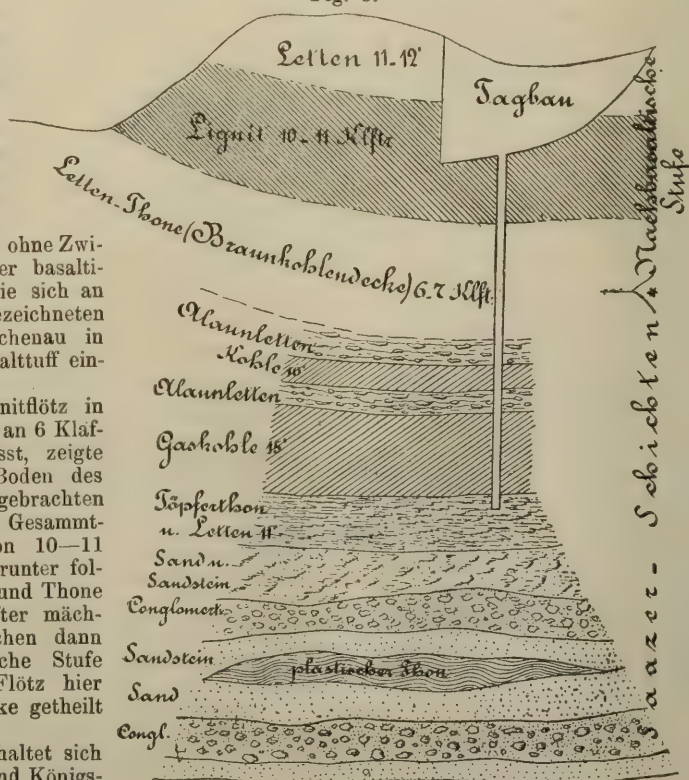 Letten 11-12'
Tagbau
Lignit 10-11 Klftr
Letten-Thone (Braunkohlendecke) 6-7 Klft.
Alaunletten
Kohle 10'
Alaunletten
Gaskohle 15'
Töpferthon
u. Letten 11'
Sand u.
Sandstein
Conglomerk
Sandstein
plastischer Thon
Sand
Congl.
Saazer-Schichten
Nachbasaltische
Stufe
ohne Zwi-
er basalti-
ie sich an
ezeichneten
chenau in
alttuff ein-
nitflötz in
an 6 Klaf-
sst, zeigte
Boden des
gebrachten
Gesammt-
on 10—11
runter fol-
und Thone
fter mäch-
chen dann
che Stufe
Flötz hier
ke getheilt
haltet sich
nd Königs-